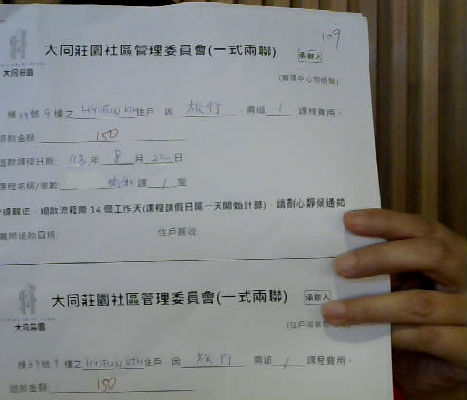 109
大同莊園社區管理委員會(一式兩聯) 承辦人
大同莊園
(管理中心存根聯)
樓之 HYOEUN KIM 住戶 因 旅行 需退 1 課程費用。
退款金額: 150
退款課程日期: 113 年 8 月 22 日
課程名稱/堂數 課 1 堂
退款流程需 14 個工作天(課程請假日隔一天開始計算) 請耐心靜候通知
實際退款日期: 住戶簽收:
大同莊園社區管理委員會(一式兩聯) 承辦人
大同莊園
(住戶收執
樓之 HYOEUN KIM 住戶 因 旅行 需退 1 課程費用。
退款金額: 150